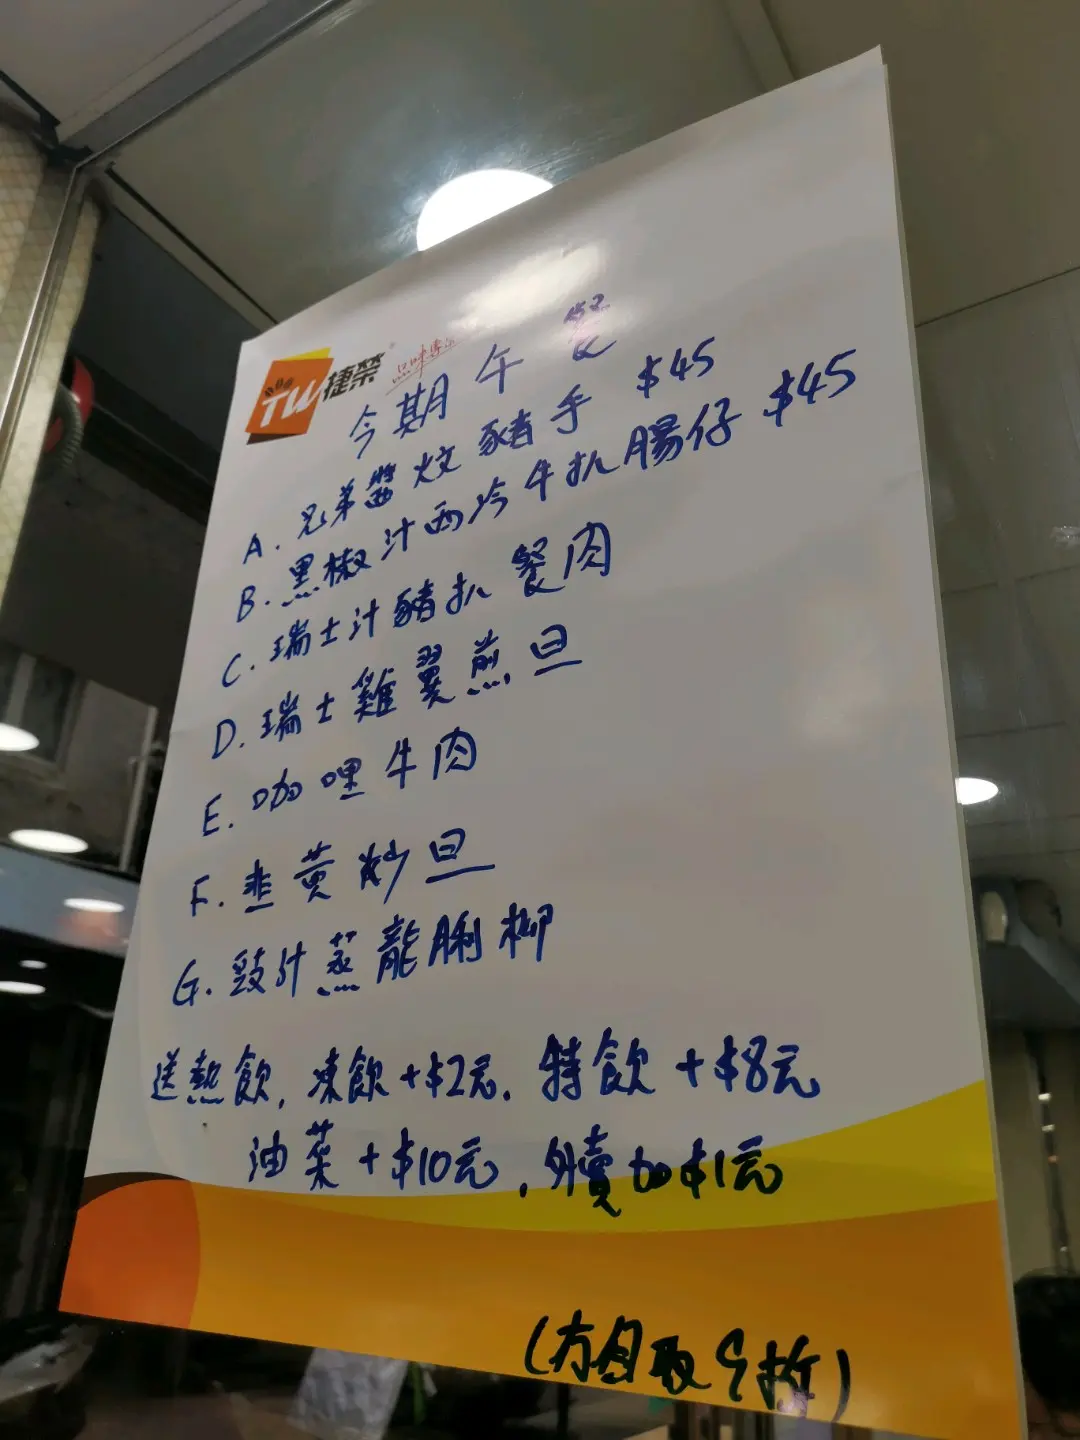 TW 捷榮
今期午餐
A. 兄弟醬炆豬手 $45
B. 黑椒汁西冷牛扒腸仔 $45
C. 瑞士汁豬扒餐肉
D. 瑞士雞翼煎旦
E. 咖哩牛肉
F. 韭黃炒旦
G. 豉汁蒸龍脷柳
送熱飲, 凍飲+$2元. 特飲+$8元
油菜+$10元, 外賣加$1元
(冇自取9折)